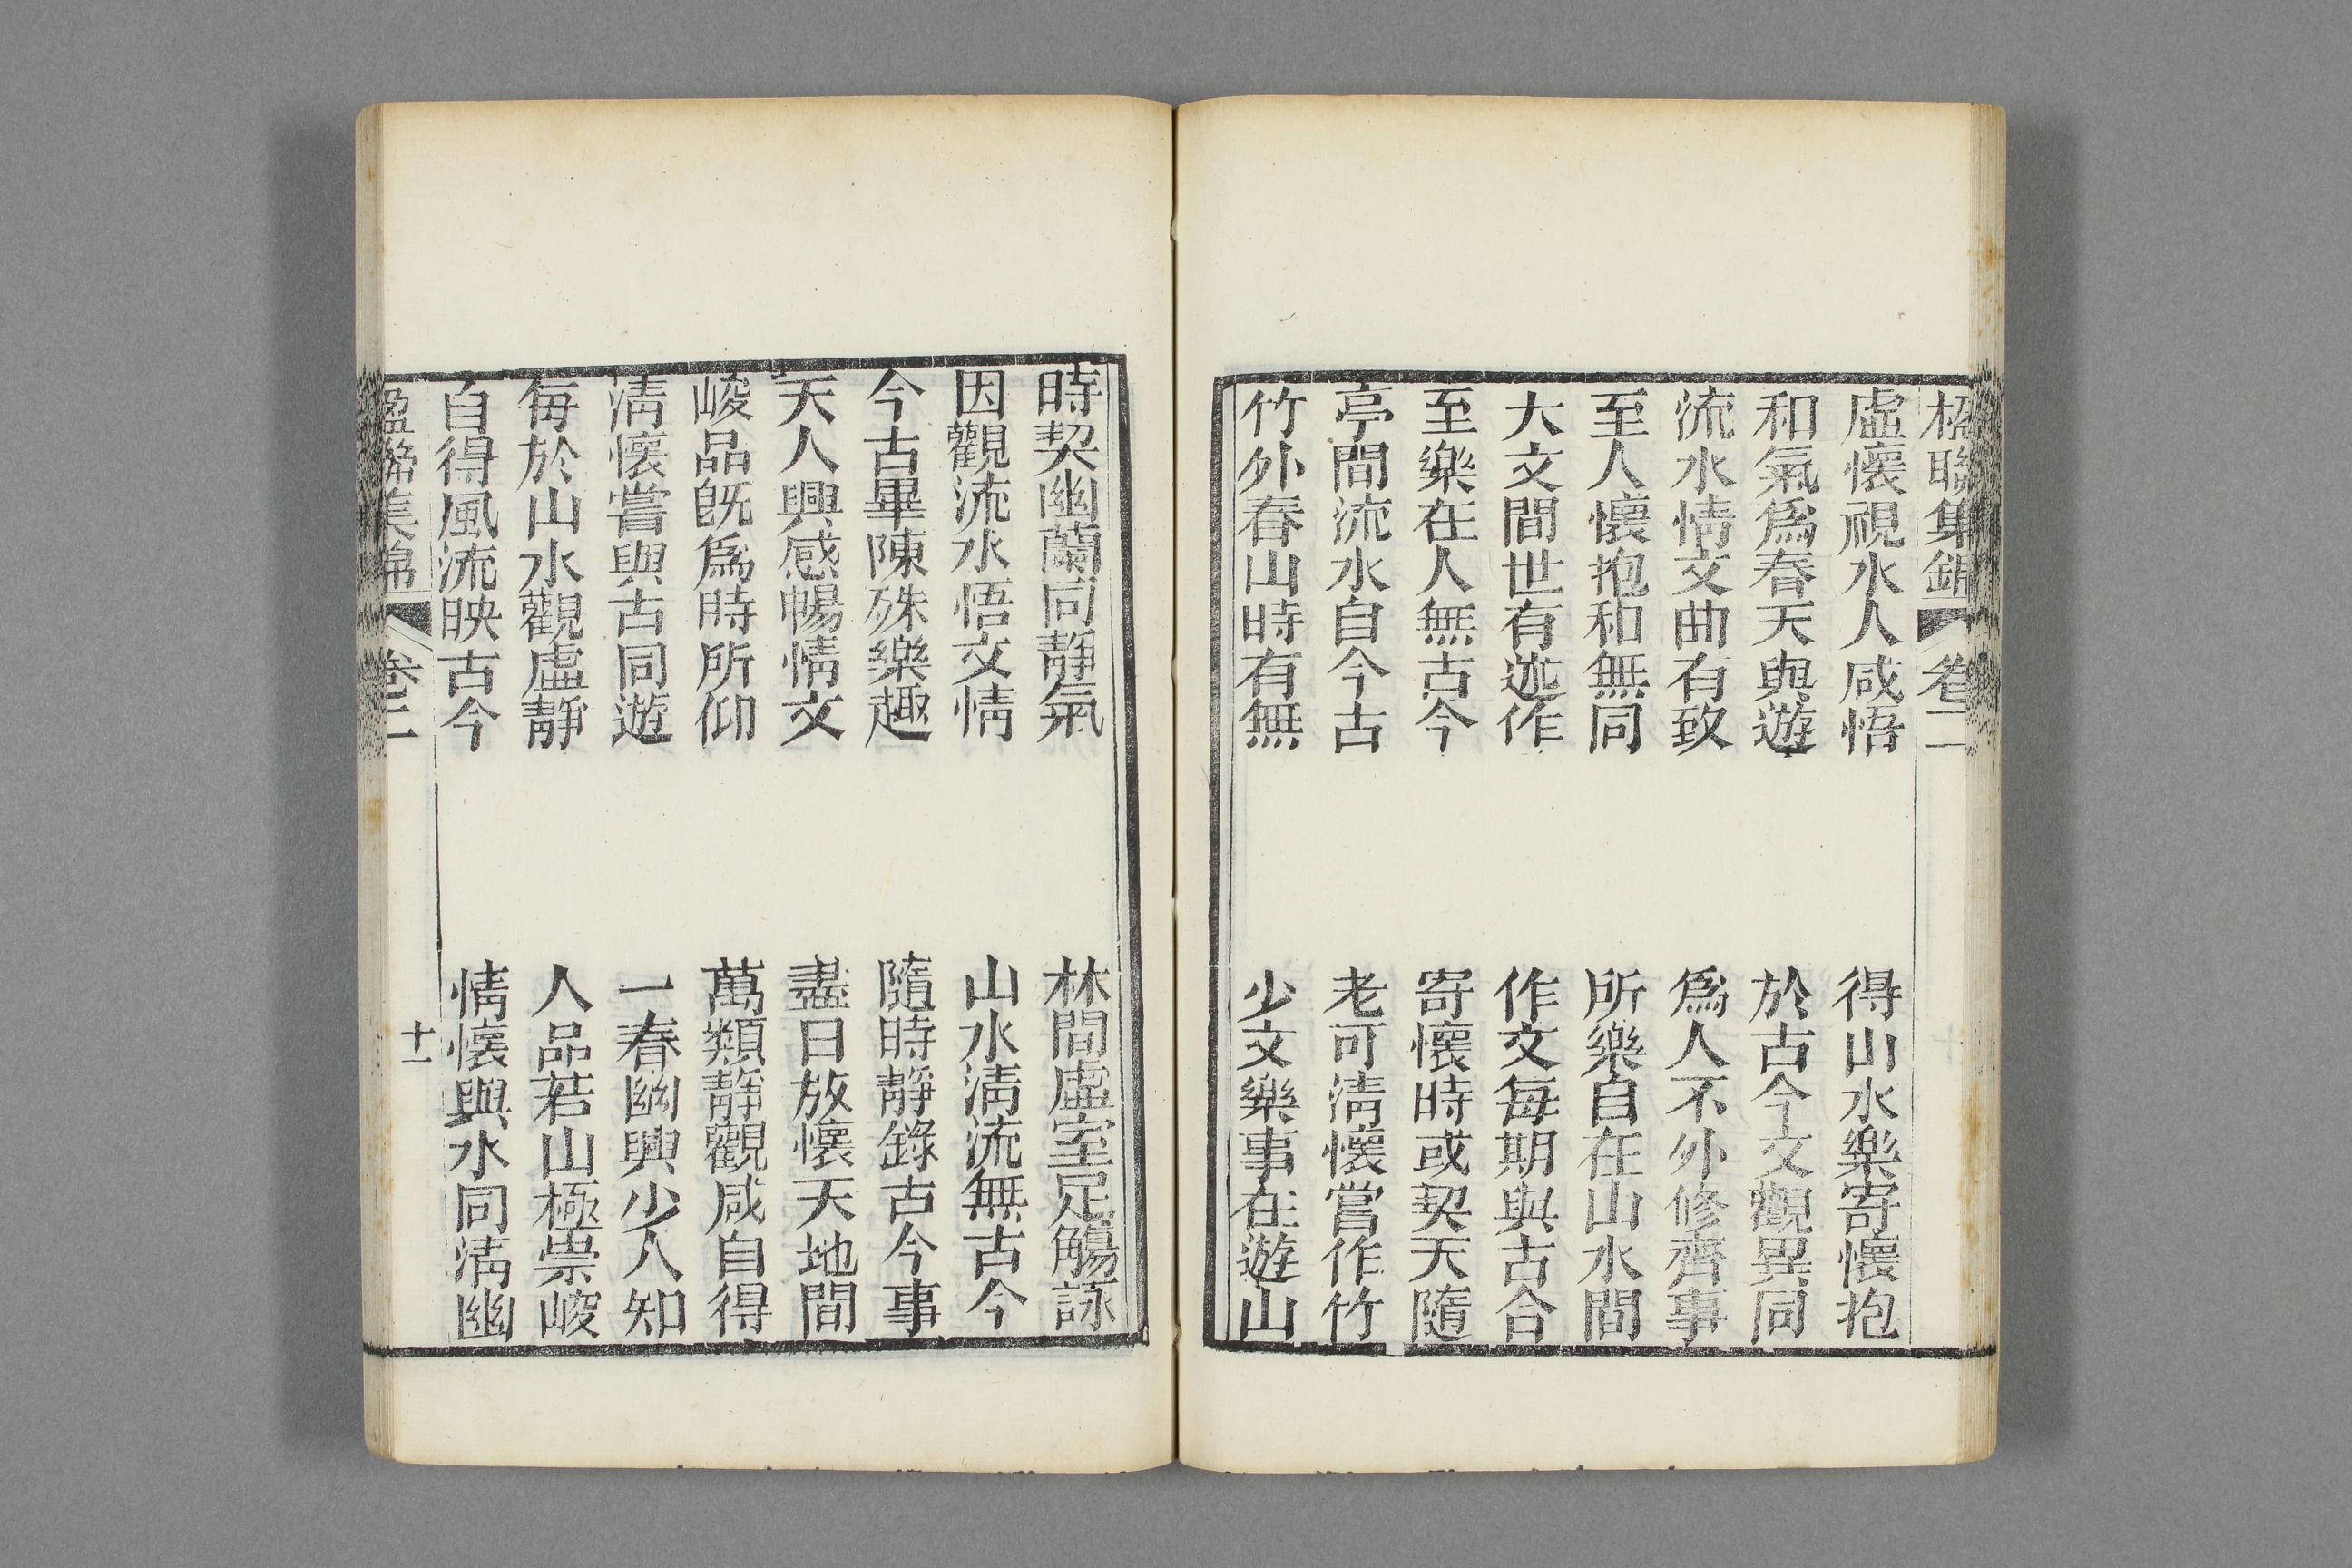 楹聯集錦 卷二
虛懷視水人咸悟 得山水樂寄懷抱
和氣爲春天與遊 於古今文觀異同
流水情文曲有致 爲人不外修齊事
至人懷抱和無同 所樂自在山水間
大文間世有述作 作文每期與古合
至樂在人無古今 寄懷時或契天隨
亭間流水自今古 老可清懷嘗作竹
竹外春山時有無 少文樂事在遊山
時契幽蘭同靜氣 林間虛室足觴詠
因觀流水悟文情 山水清流無古今
今古畢陳殊樂趣 隨時靜錄古今事
天人興感暢情文 盡日放懷天地間
峻品旣爲時所仰 萬類靜觀咸自得
清懷嘗與古同遊 一春幽興少人知
每於山水觀虛靜 人品若山極崇峻
自得風流映古今 情懷與水同清幽
楹聯集錦 卷二 十一